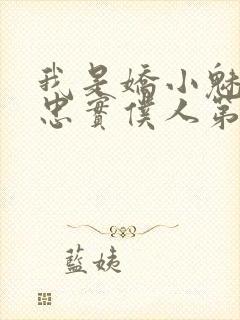 我是嬌小魅
忠實僕人第
藍姨